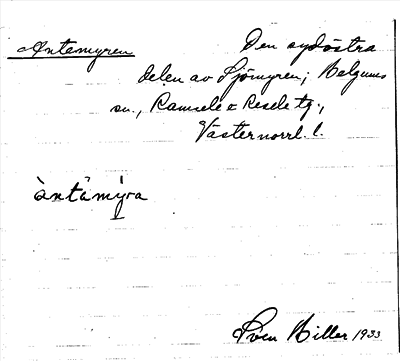 Antamyren Den sydöstra
delen av Sjömyren; Bodgums
sn., Ramsele o Resele tg.,
Västernorrl. l.
àntâmýra
Sven Biller 1933